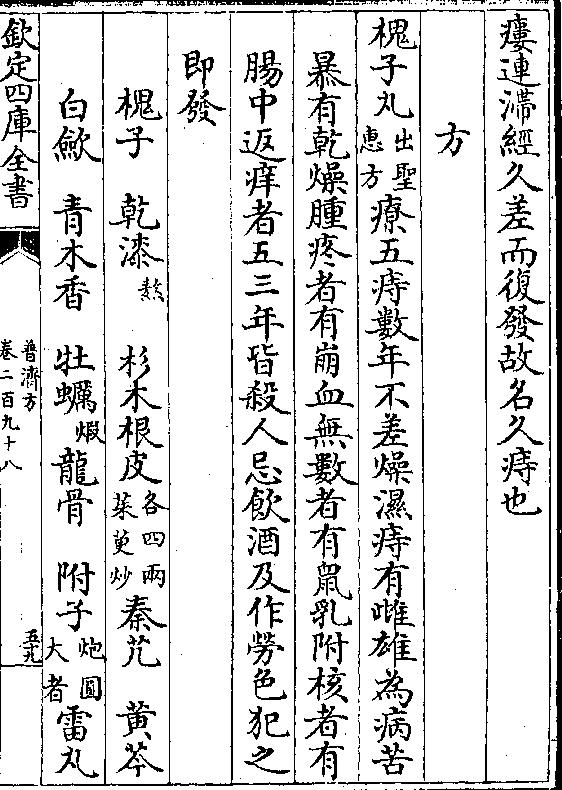 瘻連滯經久差而復發故名久痔也
方
槐子丸出聖惠方療五痔數年不差燥濕痔有雌雄為病苦
暴有乾燥腫疼者有崩血無數者有鼠乳附核者有
腸中返痒者五三年皆殺人忌飲酒及作勞色犯之
即發
槐子 乾漆熬 杉木根皮各四兩茱萸炒秦艽 黄芩
白歛 青木香 牡蠣煆龍骨 附子炮圓大者雷丸
欽定四庫全書
普濟方
卷二百九十八
五十九